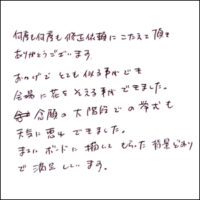 何度も何度も修正依頼にこたえて頂き
ありがとうございます
おかげで とても似る事ができ
会場に花をそえる事ができました。
念願の大階段での挙式も
天気に恵まれできました。
まさにボードに描いてもらった背景どおり
で満足しています。